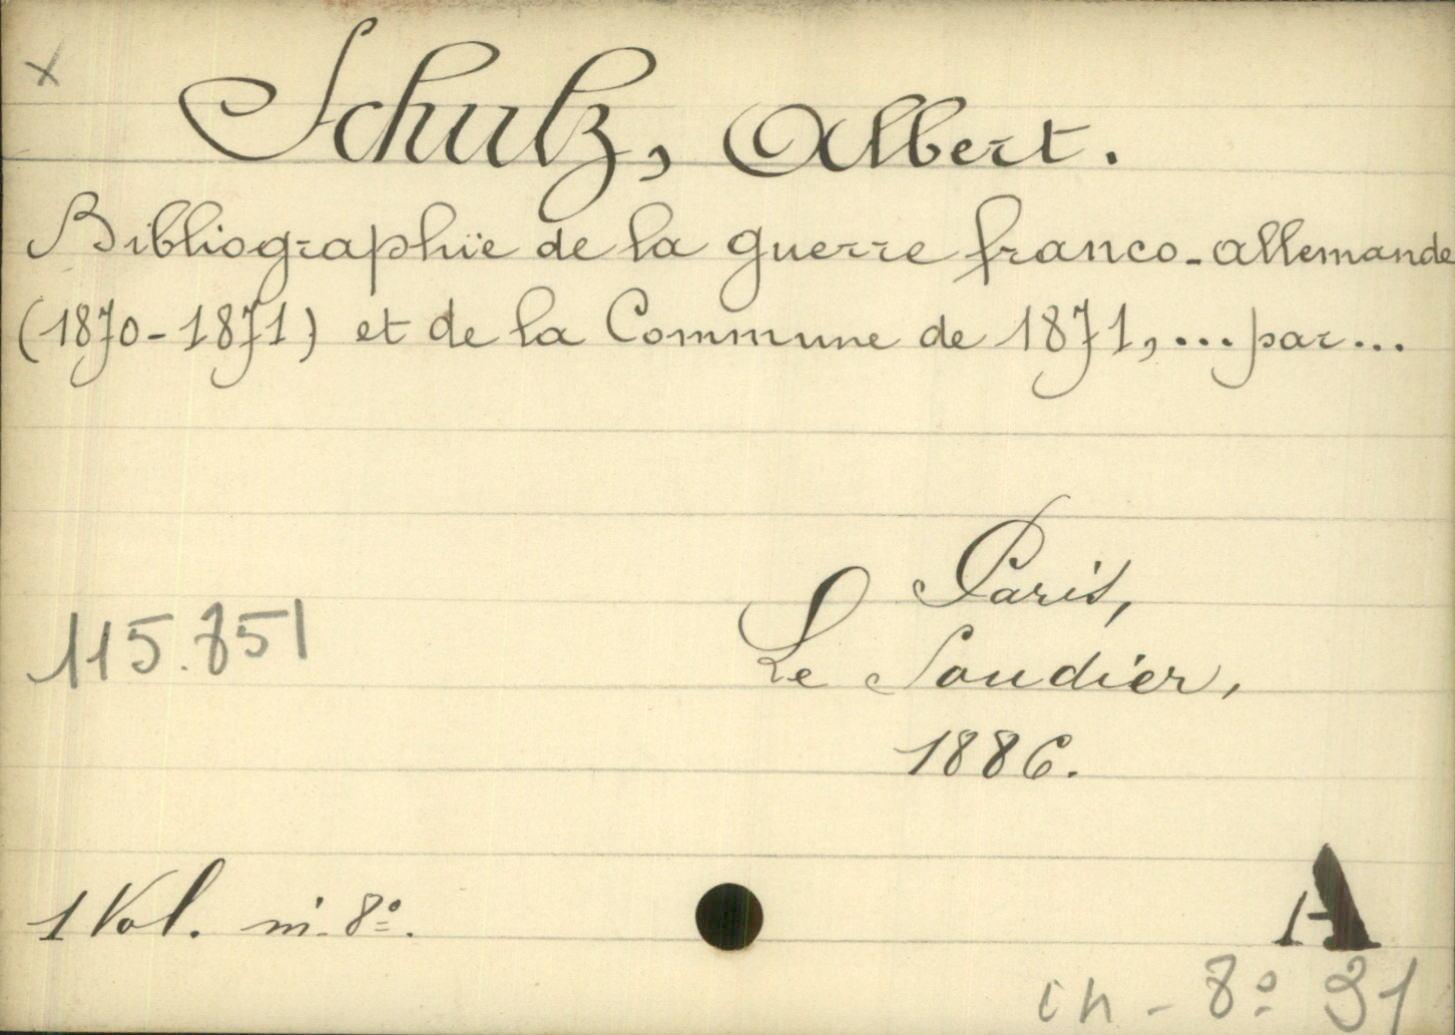 x
Schulz, Albert.
Bibliographie de la guerre franco-allemande
(1870-1871) et de la Commune de 1871,... par...
Paris,
115.851
Le Soudier,
1886.
1 Vol. in-8º.
A
in-8º 31